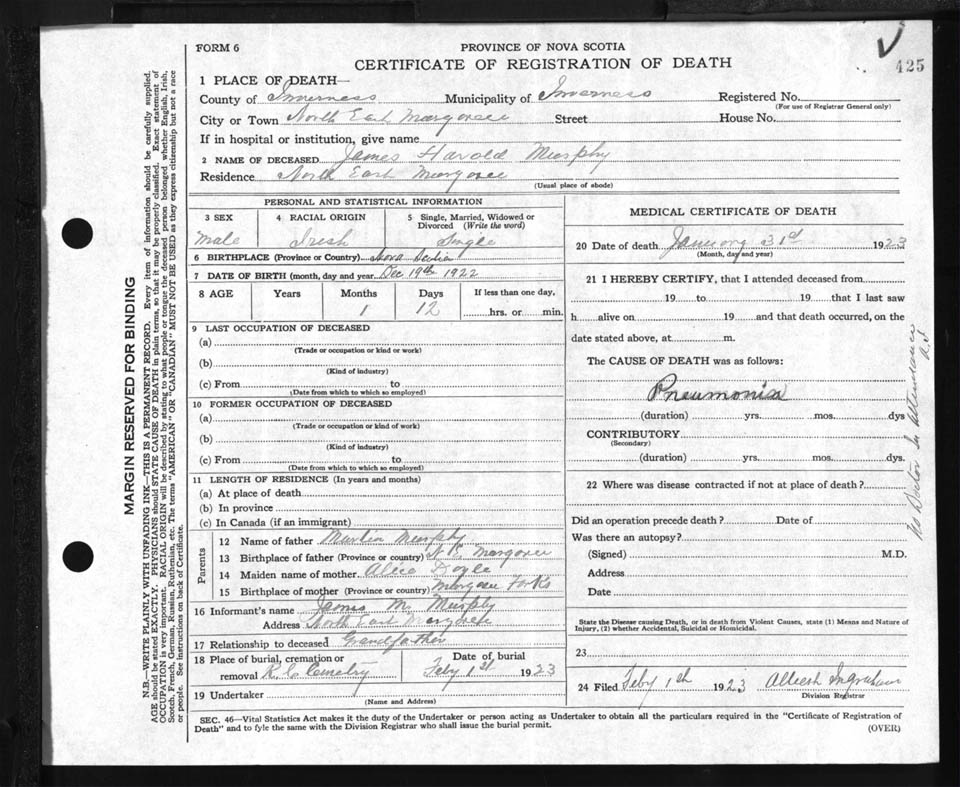 FORM 6
PROVINCE OF NOVA SCOTIA
CERTIFICATE OF REGISTRATION OF DEATH
425
1 PLACE OF DEATH—
County of Inverness Municipality of Inverness Registered No.
(For use of Registrar General only)
City or Town North East Margaree Street House No.
If in hospital or institution, give name
2 NAME OF DECEASED James Harold Murphy
Residence North East Margaree
(Usual place of abode)
PERSONAL AND STATISTICAL INFORMATION
3 SEX 4 RACIAL ORIGIN 5 Single, Married, Widowed or Divorced (Write the word)
Male Irish Single
6 BIRTHPLACE (Province or Country) Nova Scotia
7 DATE OF BIRTH (month, day and year) Dec 19th 1922
8 AGE Years Months Days If less than one day,
1 12 hrs. or min.
9 LAST OCCUPATION OF DECEASED
(a)
(Trade or occupation or kind or work)
(b)
(Kind of industry)
(c) From to
(Date from which to which so employed)
10 FORMER OCCUPATION OF DECEASED
(a)
(Trade or occupation or kind of work)
(b)
(Kind of industry)
(c) From to
(Date from which to which so employed)
11 LENGTH OF RESIDENCE (In years and months)
(a) At place of death
(b) In province
(c) In Canada (if an immigrant)
Parents
12 Name of father Martin Murphy
13 Birthplace of father (Province or country) N. E. Margaree
14 Maiden name of mother Alice Doyle
15 Birthplace of mother (Province or country) Margaree Forks
16 Informant's name James M. Murphy
Address North East Margaree
17 Relationship to deceased Grandfather
18 Place of burial, cremation or removal R. C. Cemetry Date of burial Feby 1st 1923
19 Undertaker
(Name and Address)
MEDICAL CERTIFICATE OF DEATH
20 Date of death January 31st 1923
(Month, day and year)
21 I HEREBY CERTIFY, that I attended deceased from
19 to 19 that I last saw
h alive on 19 and that death occurred, on the
date stated above, at m.
The CAUSE OF DEATH was as follows:
Pneumonia
(duration) yrs. mos. dys
CONTRIBUTORY
(Secondary)
(duration) yrs. mos. dys.
22 Where was disease contracted if not at place of death?
Did an operation precede death? Date of
Was there an autopsy?
(Signed) M.D.
Address
Date
State the Disease causing Death, or in death from Violent Causes, state (1) Means and Nature of
Injury, (2) whether Accidental, Suicidal or Homicidal.
23
24 Filed Feby 1st 1923 Ingraham
Division Registrar
No Doctor in Attendance
SEC. 46—Vital Statistics Act makes it the duty of the Undertaker or person acting as Undertaker to obtain all the particulars required in the "Certificate of Registration of
Death" and to fyle the same with the Division Registrar who shall issue the burial permit.
(OVER)
MARGIN RESERVED FOR BINDING
N.B.—WRITE PLAINLY WITH UNFADING INK—THIS IS A PERMANENT RECORD. Every item of information should be carefully supplied.
AGE should be stated EXACTLY. PHYSICIANS should STATE CAUSE OF DEATH in plain terms, so that it may be properly classified. Exact statement of
OCCUPATION is very important. RACIAL ORIGIN will be described by stating to what people or tongue the deceased person belonged whether English, Irish,
Scotch, French, German, Russian, Ruthenian, etc. The terms "AMERICAN" OR "CANADIAN" MUST NOT BE USED as they express citizenship but not a race
or people. See instructions on back of Certificate.